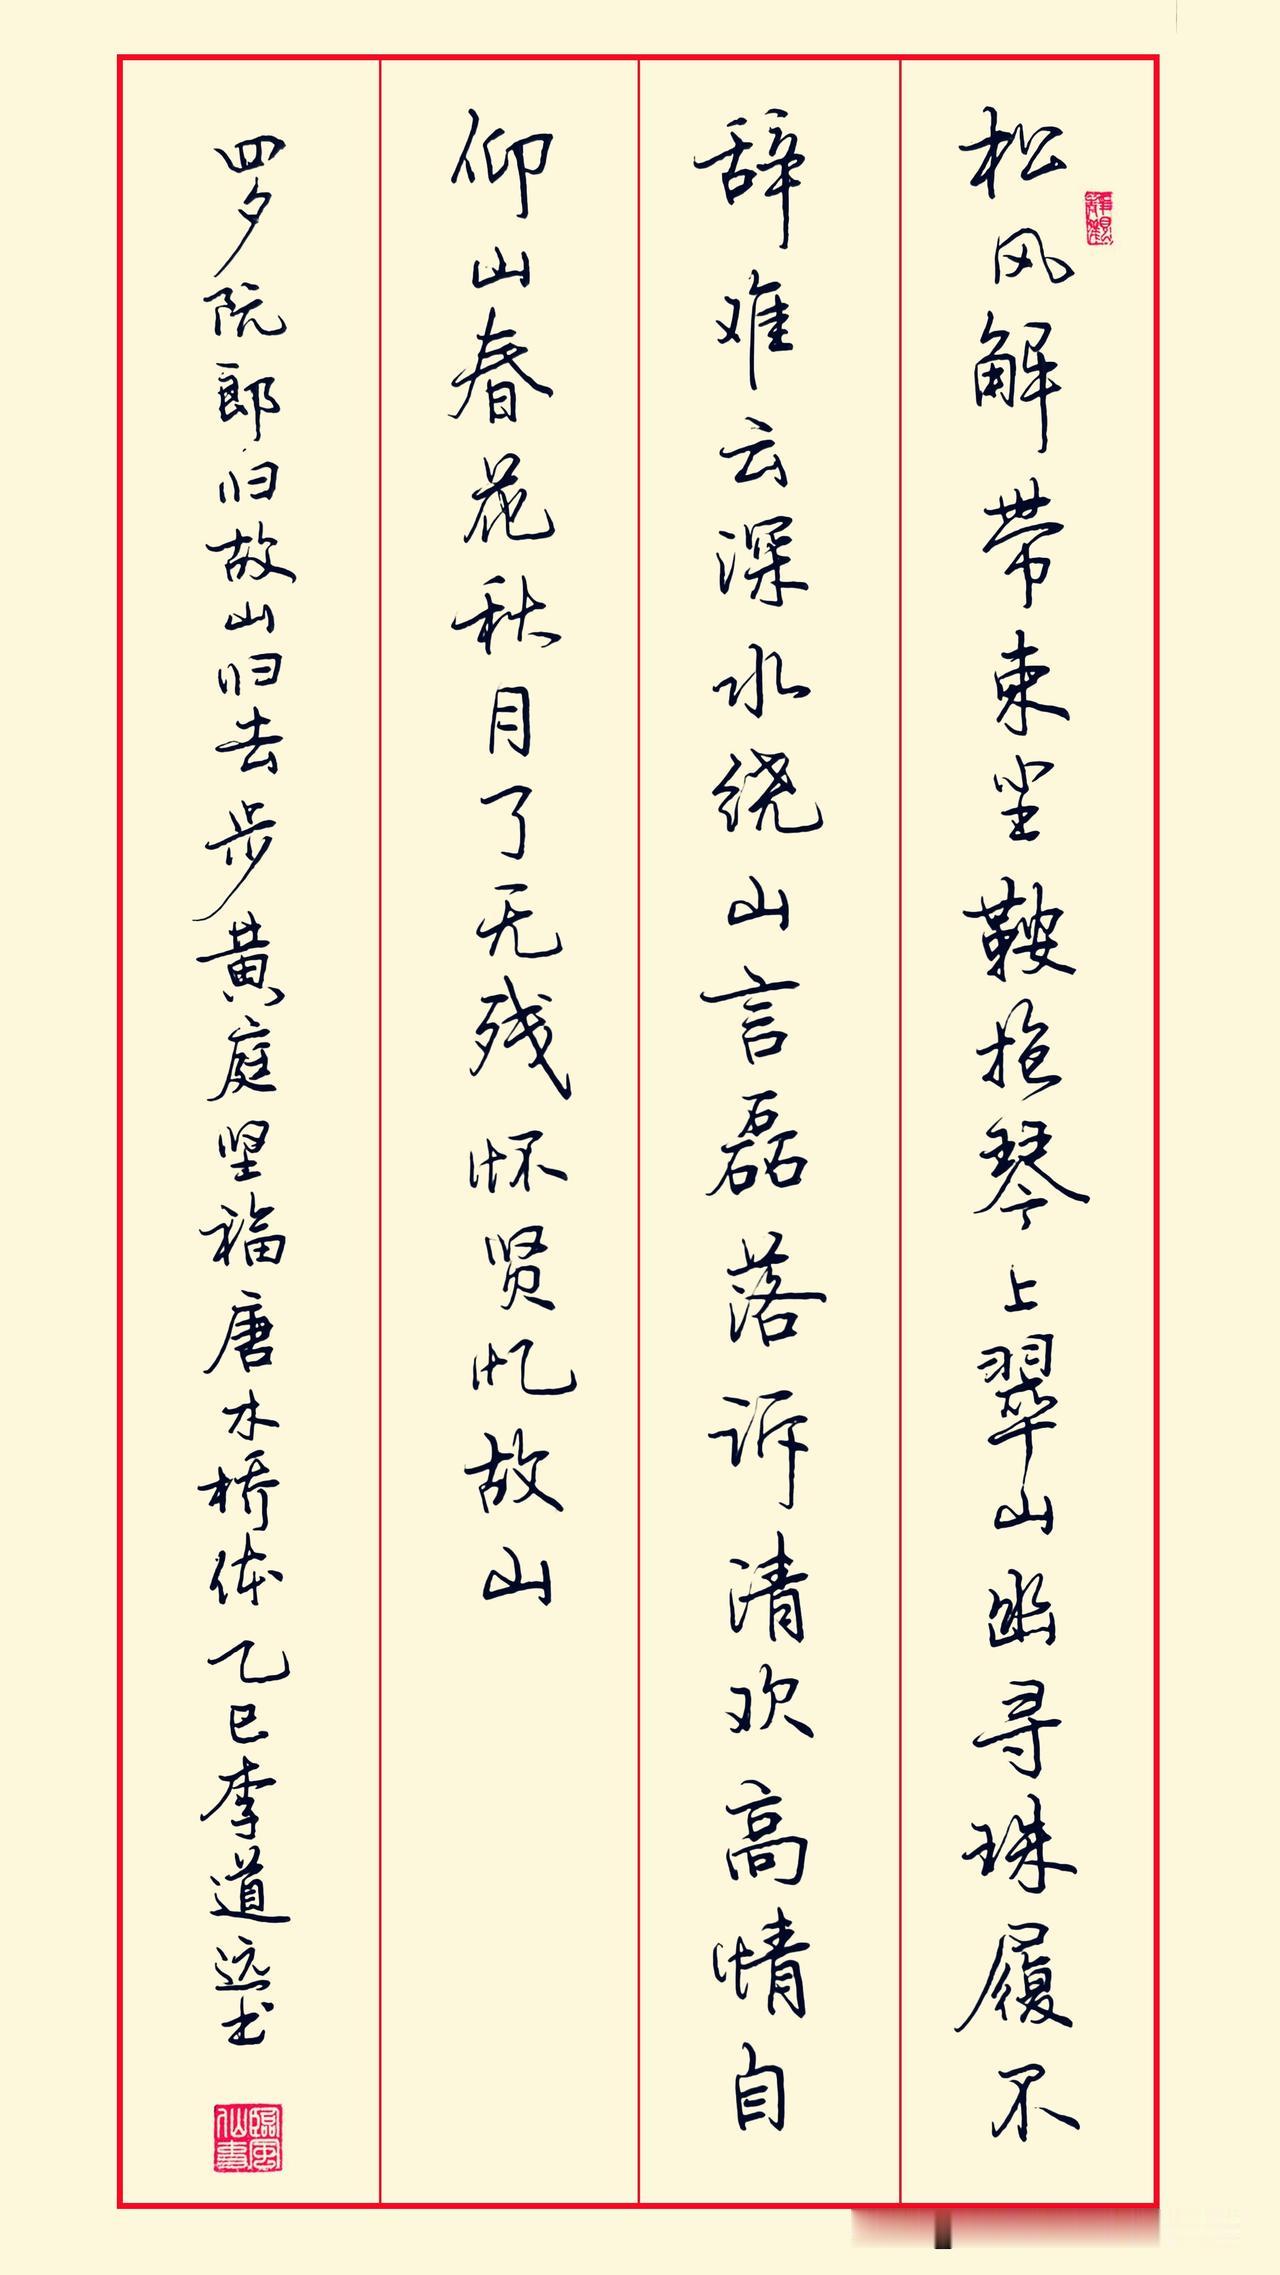 松风解带束尘鞍抱琴上翠山幽寻珠履不
辞难云深水绕山言磊落诉清欢高情自
仰山春花秋月了无残怀贤忆故山
罗阮郎归故山归去步黄庭坚福唐木桥体乙巳李道远书
临风仙书